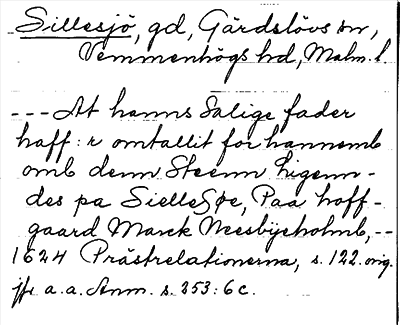 Sillesjö, gd, Gärdslövs sn,
Vemmenhögs hd, Malm. l.
--- At hanns Salige fader
haff:r omtallit for hannemb
omb denn Steenn Liggenn-
des pa SielleSøe, Paa hoff-
gaard Marck Neesbyeholmb, --
1624 Prästrelationerna, s. 122. orig.
jfr a.a. Anm. s. 253: 6 c.